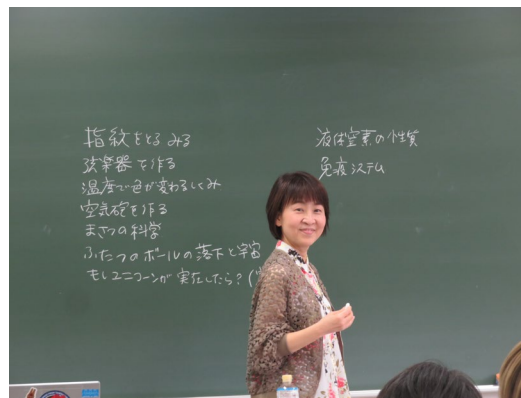 指紋をとる みる
弦楽器を作る
温度で色が変わるしくみ
空気砲を作る
まさつの科学
ふたつのボールの落下と宇宙
もしユニコーンが実在したら? (
液体窒素の性質
免疫システム